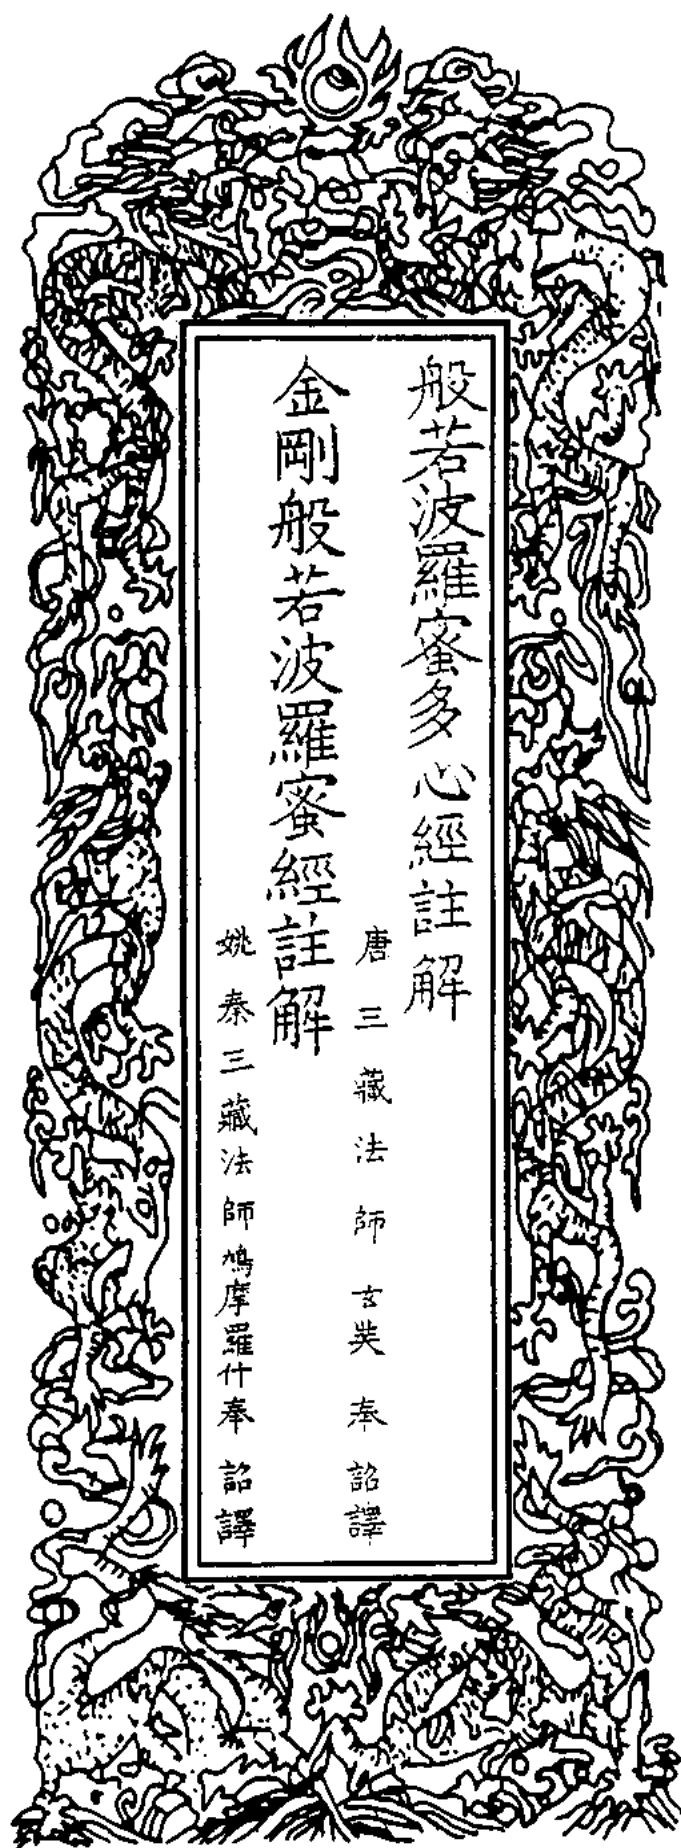 般若波羅蜜多心經註解
唐三藏法師玄奘奉詔譯
金剛般若波羅蜜經註解
姚秦三藏法師鳩摩羅什奉詔譯